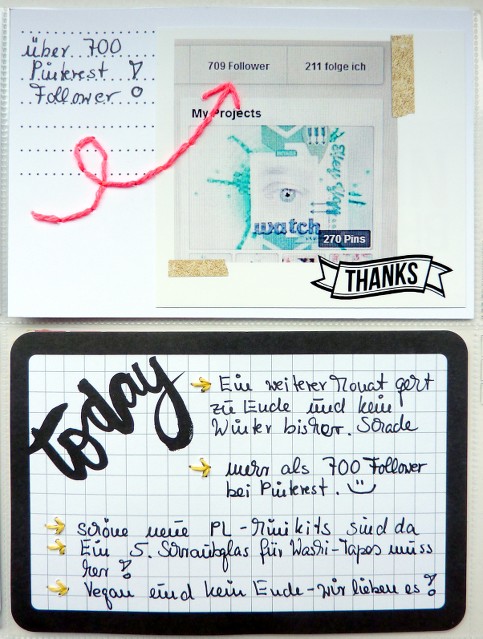 über 700
Pinterest
Follower !
709 Follower
211 folge ich
My Projects
watch
270 Pins
THANKS
today
Ein weiterer Monat geht
zu Ende und kein
Winter bisher. Schade
mehr als 700 Follower
bei Pinterest.
schöne neue PL-Minikits sind da
Ein 5. Schraubglas für Washi-Tapes muss
her !
Vegan und kein Ende - wir lieben es !